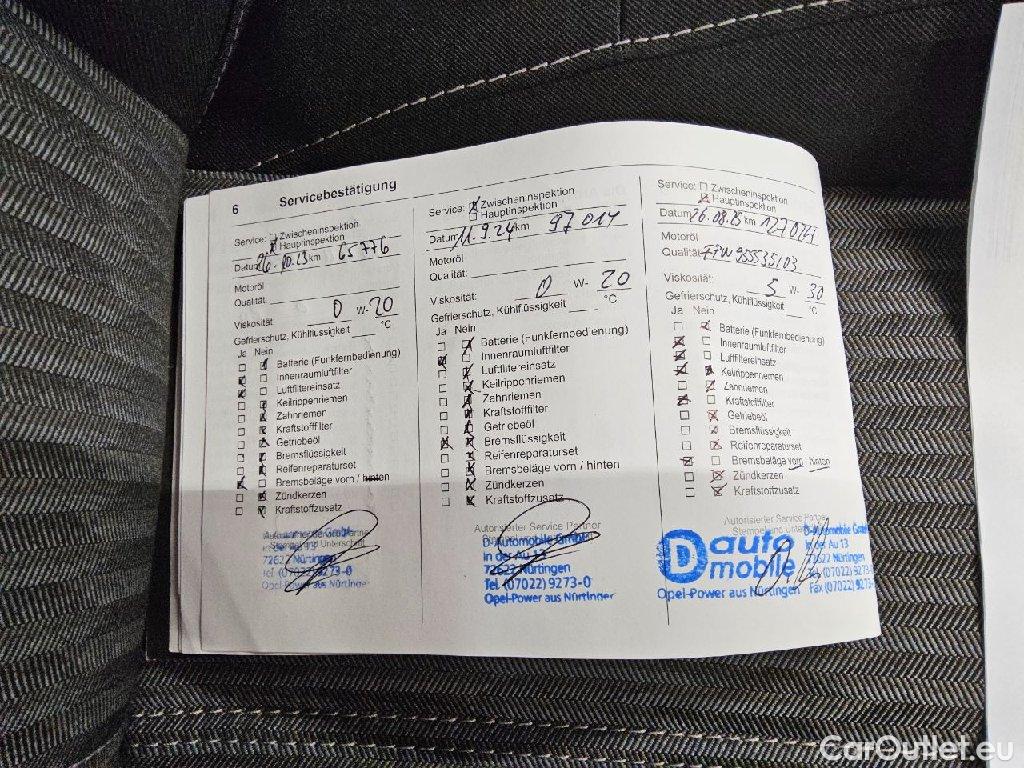 6 Servicebestätigung
Service: Zwischeninspektion
Hauptinspektion
Datum 26.10.23 km 65 776
Motoröl
Qualität:
Viskosität: 0 W- 20
Gefrierschutz, Kühlflüssigkeit °C
Ja Nein
Batterie (Funkfernbedienung)
Innenraumluftfilter
Luftfiltereinsatz
Keilrippenriemen
Zahnriemen
Kraftstofffilter
Getriebeöl
Bremsflüssigkeit
Reifenreparaturset
Bremsbeläge vorn / hinten
Zündkerzen
Kraftstoffzusatz
72622 Nürtingen
Tel. (07022) 9273-0
Opel-Power aus Nürtingen
Service: Zwischeninspektion
Hauptinspektion
Datum 11.9.24 km 97 014
Motoröl
Qualität:
Viskosität: 0 W- 20
Gefrierschutz, Kühlflüssigkeit °C
Ja Nein
Batterie (Funkfernbedienung)
Innenraumluftfilter
Luftfiltereinsatz
Keilrippenriemen
Zahnriemen
Kraftstofffilter
Getriebeöl
Bremsflüssigkeit
Reifenreparaturset
Bremsbeläge vorn / hinten
Zündkerzen
Kraftstoffzusatz
Autorisierter Service Partner
D-Automobile GmbH
In der Au 13
72622 Nürtingen
Tel. (07022) 9273-0
Opel-Power aus Nürtingen
Service: Zwischeninspektion
Hauptinspektion
Datum 26.08.25 km
Motoröl
Qualität:
Viskosität: 5 W- 30
Gefrierschutz, Kühlflüssigkeit °C
Ja Nein
Batterie (Funkfernbedienung)
Innenraumluftfilter
Luftfiltereinsatz
Keilrippenriemen
Zahnriemen
Kraftstofffilter
Getriebeöl
Bremsflüssigkeit
Reifenreparaturset
Bremsbeläge vorn hinten
Zündkerzen
Kraftstoffzusatz
Autorisierter Service Partner
D auto mobile
D-Automobile GmbH
In der Au 13
72622 Nürtingen
Tel. (07022) 9273
Opel-Power aus Nürtingen Fax (07022) 927
CarOutlet.eu